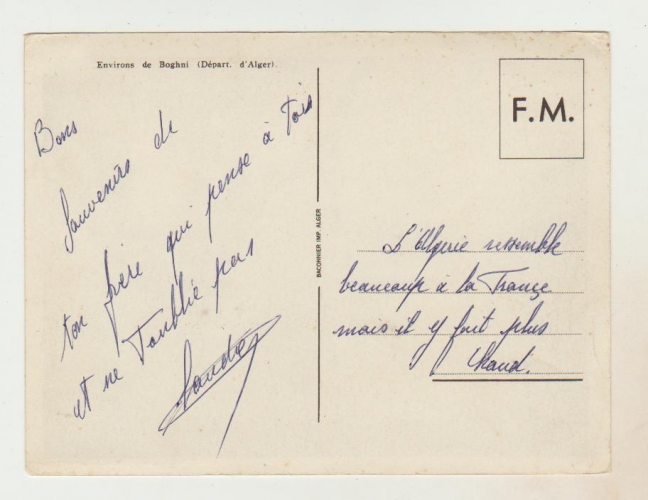 Environs de Boghni (Départ. d'Alger).
Bons
Souvenirs de
ton frère qui pense à Tois
et ne T'oublie pas
F.M.
BACONNIER IMP. ALGER
L'Algerie ressemble
beaucoup a la France
mais il y fait plus
Chaud.